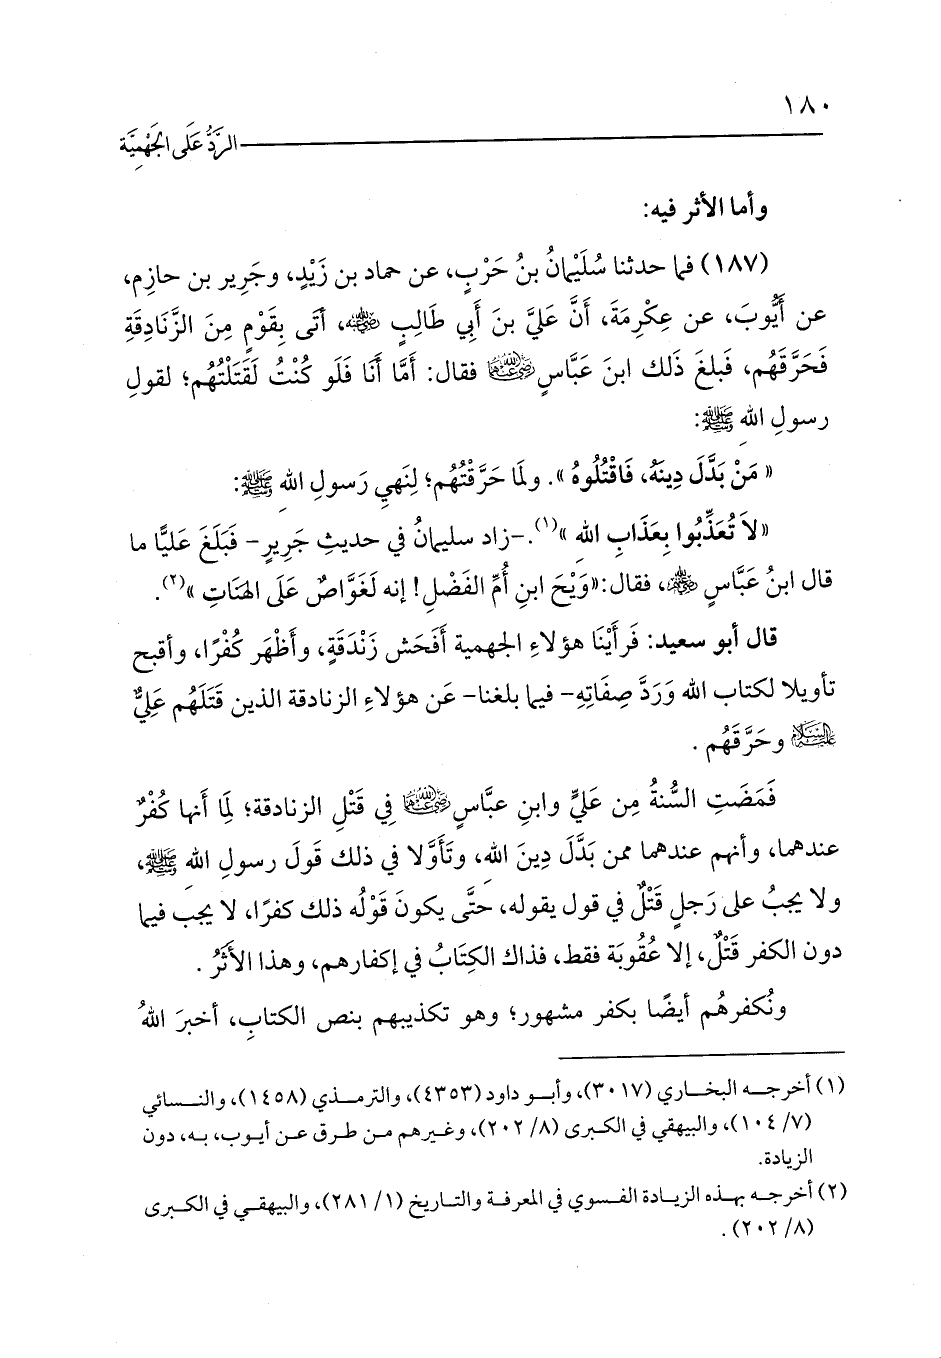 ١٨٠
الرَّدُّ عَلَى الجَهْمِيَّة
وأما الأثر فيه:
(١٨٧) فما حدثنا سُلَيْمانُ بنُ حَرْبٍ، عن حماد بن زَيْدٍ، وجَرِير بن حازِم،
عن أَيُّوبَ، عن عِكْرِمَةَ، أَنَّ عَلِيَّ بنَ أَبِي طَالِبٍ رضي الله عنه، أَتَى بِقَوْمٍ مِنَ الزَّنَادِقَةِ
فَحَرَّقَهُم، فَبلغَ ذَلك ابنَ عَبَّاسٍ رضي الله عنهما فقال: أَمَّا أَنَا فَلَو كُنْتُ لَقَتَلْتُهُم؛ لقولِ
رسولِ اللهِ ﷺ:
« مَنْ بَدَّلَ دِينَهُ، فَاقْتُلُوهُ ». ولَمَا حَرَّقْتُهُم؛ لِنَهيِ رَسولِ اللهِ ﷺ:
«لاَ تُعَذِّبُوا بِعَذَابِ اللهِ »(١). -زاد سليمانُ في حديثِ جَرِيرٍ- فَبَلَغَ عَليًّا ما
قال ابنُ عَبَّاسٍ رضي الله عنهم، فقال:«وَيْحَ ابنِ أُمِّ الفَضْلِ! إنه لَغَوَّاصٌ عَلَى الهَنَاتِ »(٢).
قال أبو سعيد: فَرأَيْنَا هؤلاءِ الجهمية أَفَحَش زَنْدَقَةٍ، وأَظْهَر كُفْرًا، وأقبح
تأويلا لكتاب الله وَرَدَّ صِفَاتِهِ- فيما بلغنا- عَن هؤلاءِ الزنادقة الذين قَتَلَهُم عَلِيٌّ
عليه السلام وحَرَّقَهُم .
فَمَضَتِ السُّنةُ مِن عَلِيٍّ وابنِ عبَّاسٍ رضي الله عنهما فِي قَتْلِ الزنادقة؛ لِمَا أَنها كُفْرٌ
عندهما، وأنهم عندهما ممن بَدَّلَ دِينَ اللهِ، وتَأَوَّلا في ذلك قَولَ رسولِ اللهِ ﷺ،
ولا يجبُ على رَجلٍ قَتْلٌ في قول يقوله، حتَّى يكونَ قَوْلُه ذلك كفرًا، لا يجب فيما
دون الكفر قَتْلٌ، إلا عُقُوبَة فقط، فذاك الكِتَابُ في إكفارهم، وهذا الأَثَرُ .
ونُكفرهُم أيضًا بكفر مشهور؛ وهو تكذيبهم بنص الكتابِ، أخبرَ اللهُ
(١) أخرجه البخاري (٣٠١٧)، وأبو داود (٤٣٥٣)، والترمذي (١٤٥٨)، والنسائي
(٧/ ١٠٤)، والبيهقي في الكبرى (٨/ ٢٠٢)، وغيرهم من طرق عن أيوب، به، دون
الزيادة.
(٢) أخرجه بهذه الزيادة الفسوي في المعرفة والتاريخ (١/ ٢٨١)، والبيهقي في الكبرى
(٨/ ٢٠٢) .